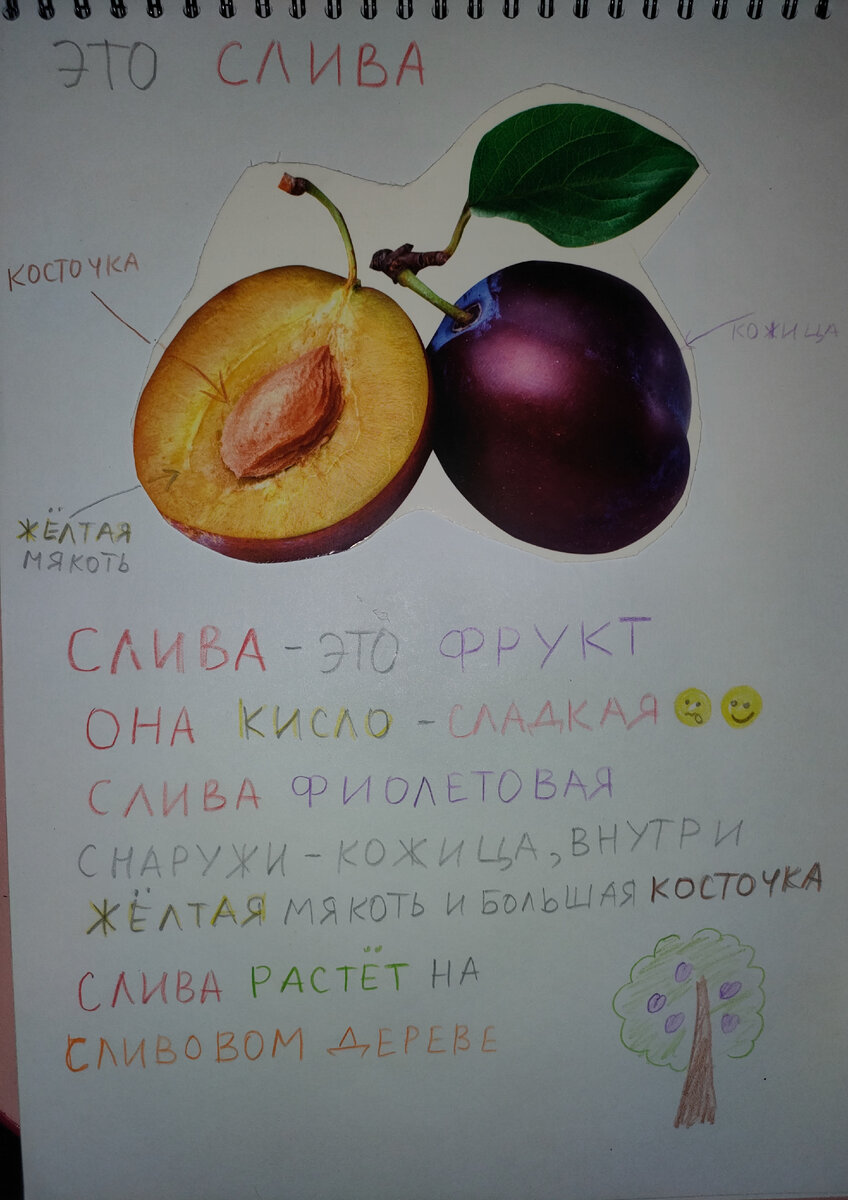 ЭТО СЛИВА
КОСТОЧКА
КОЖИЦА
ЖЁЛТАЯ
МЯКОТЬ
СЛИВА - ЭТО ФРУКТ
ОНА КИСЛО - СЛАДКАЯ
СЛИВА ФИОЛЕТОВАЯ
СНАРУЖИ - КОЖИЦА, ВНУТРИ
ЖЁЛТАЯ МЯКОТЬ И БОЛЬШАЯ КОСТОЧКА
СЛИВА РАСТЁТ НА
СЛИВОВОМ ДЕРЕВЕ